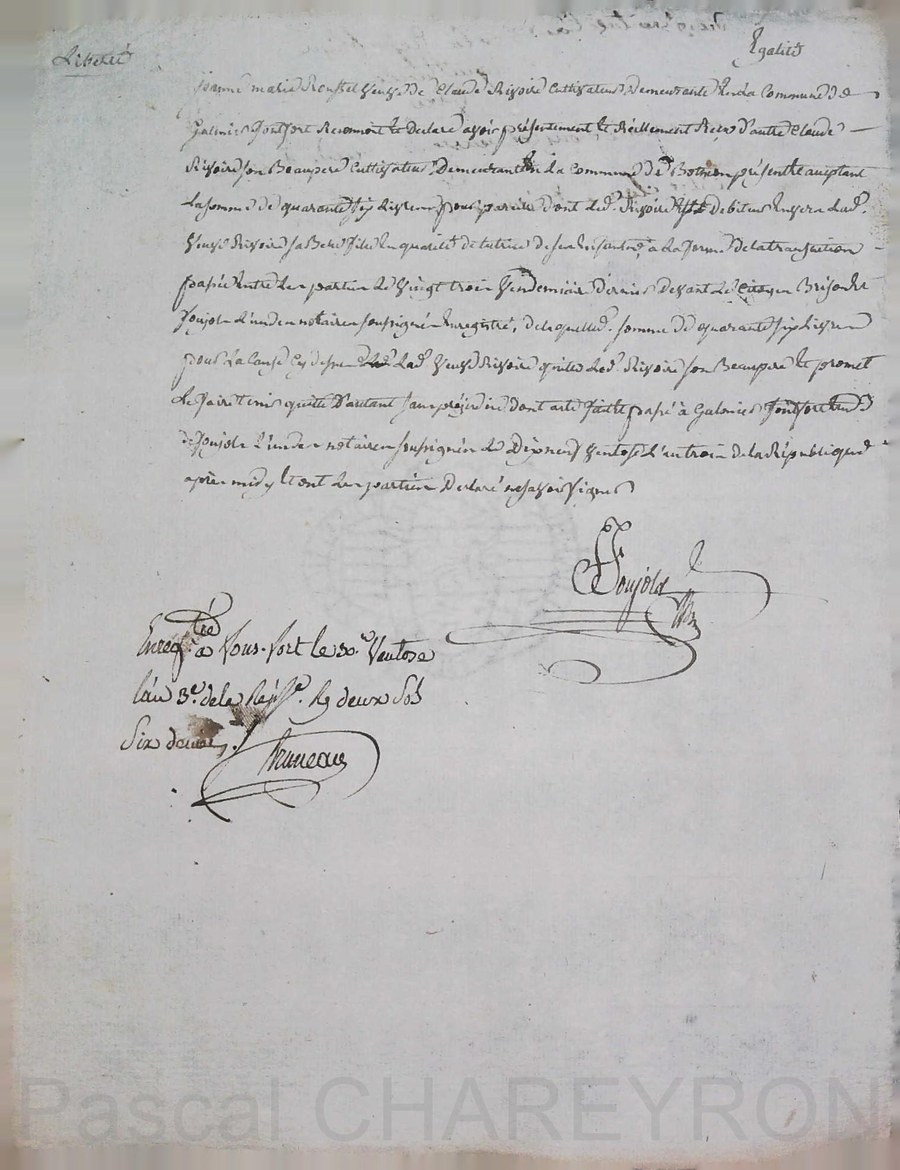 Liberté Egalité
jeanne marie Rousset veuve de Claude Rivoire Cultivateur Demeurante En la Commune de
Galmier fontfort Reconnoit Et Declare avoir présentement Et Réellement Recu d'autre Claude
Rivoire son Beaupere Cultivateur Demeurant En La Commune de présent Et acceptant
La somme de quarante six Livres pour pareille dont Led. Rivoire Est Debiteur Envers Lad.
Veuve Rivoire sa Belle fille En qualité de tutrice de ses Enfants, a La forme de la transaction
passée Entre Les parties Le Vingt trois Vendemiaire Dernier Devant Le Citoyen Et
Poujols L'un des notaires soussignés Enregistré, de laquelle somme de quarante six Livres
pour La Cause Cy dessus Lad. Veuve Rivoire quitte Led. Rivoire son Beaupere Et promet
Le faire tenir quitte D'autant sans préjudice dont acte fait Et passé à Galmier fontfort
de Poujols L'un des notaires soussignés Le Dixneuf Ventose L'an trois de la République
après midy Et ont Les parties Declaré ne savoir signer
Poujols
Enregtré à Fons-fort le 30.e Ventose
l'an 3.e de la Rép.e R. deux sols
six deniers.
Bruneau
Pascal CHAREYRON